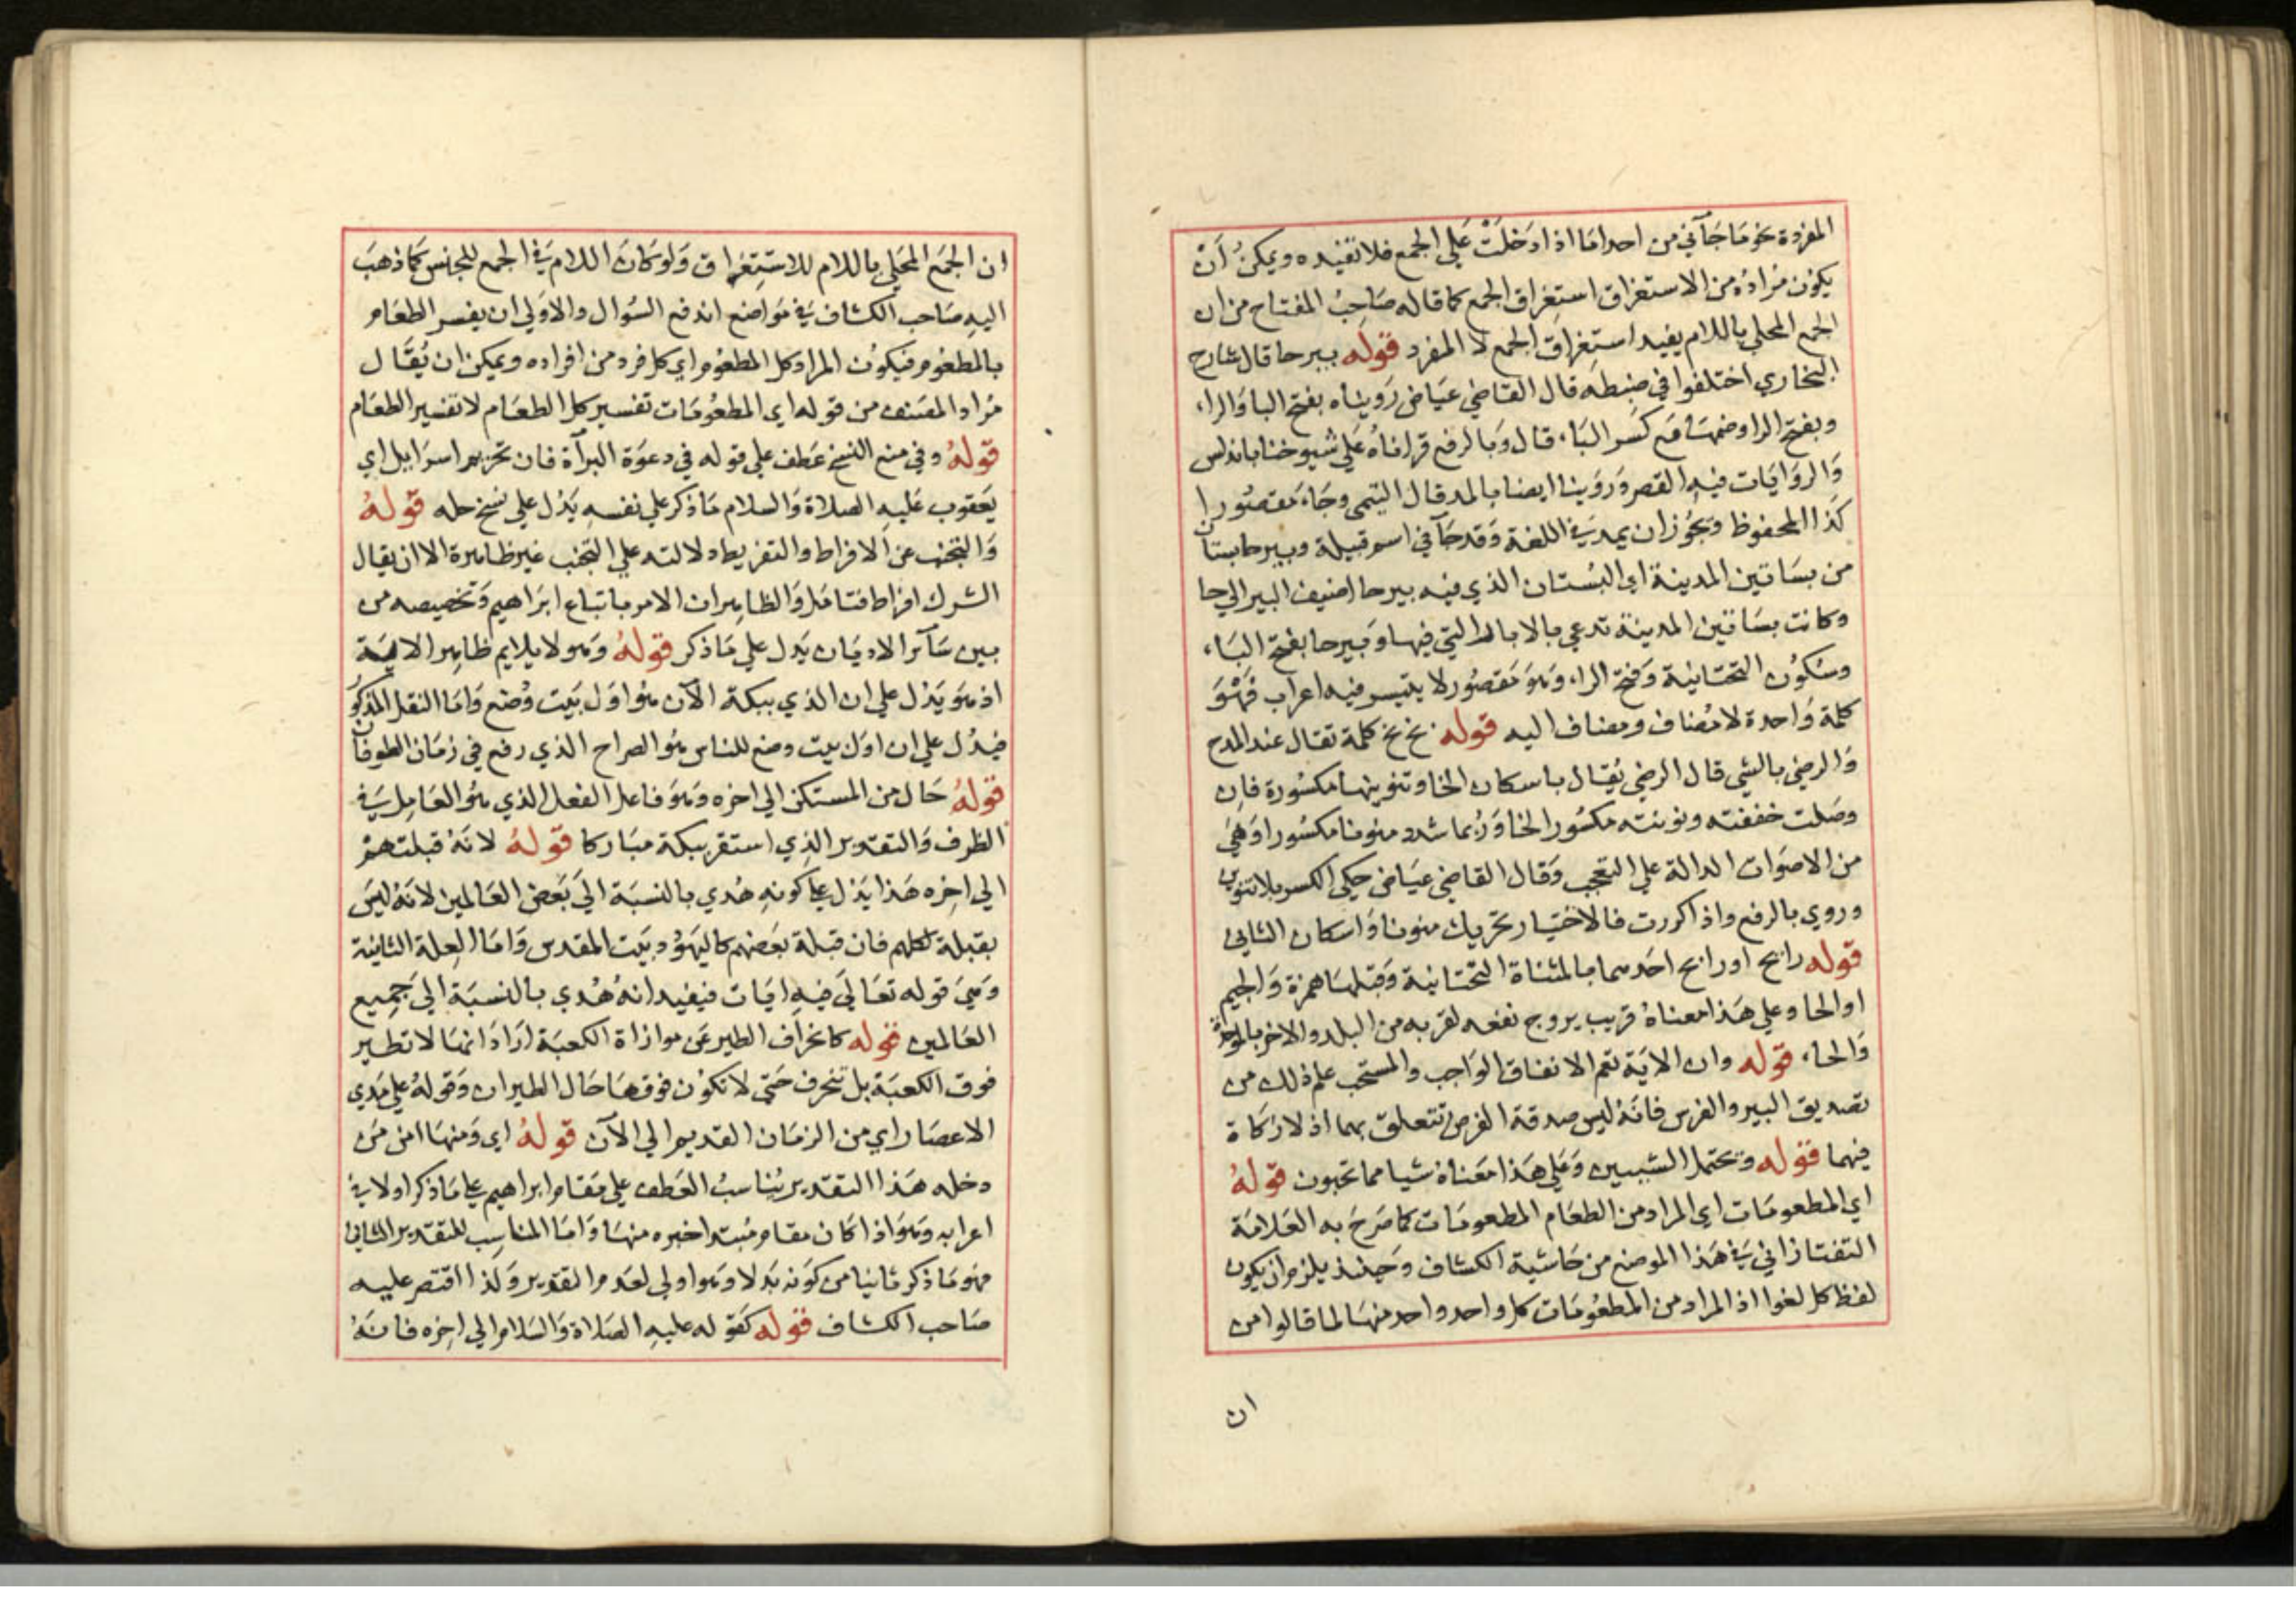 المفردة نحو ما جآني من احد اما اذا دخلت علي الجمع فلا تفيده ويمكن ان
يكون مراده من الاستغراق استغراق الجمع كما قاله صاحب المفتاح من ان
الجمع المحلي باللام يفيد استغراق الجمع لا المفرد قوله بيرحا قال شارح
البخاري اختلفوا في ضبطه قال القاضي عياض رويناه بفتح البا والراء
وبفتح الرا وضمها مع كسر الباء قال وبالرفع قراناه علي شيوخنا باندلس
والروايات فيه القصر وروينا ايضا بالمد قال التيمي وجاء مقصورا
كذا المحفوظ ويجوز ان يمد في اللغة وقد جآ في اسم قبيلة وبيرحا بستان
من بساتين المدينة اي البستان الذي فيه بيرحا اضيف البير الي حا
وكانت بساتين المدينة تدعي بالابار التي فيها وبيرحا بفتح الباء
وسكون التحتانية وفتح الراء وهو مقصور لا يتيسر فيه اعراب فهو
كلمة واحدة لا مضاف ومضاف اليه قوله بخ بخ كلمة تقال عند المدح
والرضي بالشي قال الرضي يقال باسكان الخا وتنوينها مكسورة فان
وصلت خففته ونونته مكسور الخا وربما شدد منونا مكسورا وهي
من الاصوات الدالة علي التعجب وقال القاضي عياض حكي الكسر بلا تنوين
وروي بالرفع واذا كررت فالاختيار تحريك منونا واسكان الثاني
قوله رايح او رابح احدهما بالمثناة التحتانية وقبلها همزة والجيم
او الحا وعلي هذا معناه قريب يروج نفعه لقربه من البلد والاخر بالموحدة
والحاء قوله وان الاية تعم الانفاق الواجب والمستحب علم ذلك من
تصديق البير والفرس فانه ليس صدقة الفرض تتعلق بهما اذ لا زكاة
فيهما قوله ويحتمل التبيين وعلي هذا معناه شيا مما تحبون قوله
اي المطعومات اي المراد من الطعام المطعومات كما صرح به العلامة
التفتازاني في هذا الموضع من حاشية الكشاف وحينئذ يلزم ان يكون
لفظ كل لغوا اذ المراد من المطعومات كل واحد واحد منها لما قالوا من
ان
ان الجمع المحلي باللام للاستغراق ولو كان اللام في الجمع للجنس كما ذهب
اليه صاحب الكشاف في مواضع اندفع السؤال والاولي ان يفسر الطعام
بالمطعوم فيكون المراد كل المطعوم اي كل فرد من افراده ويمكن ان يقال
مراد المصنف من قوله اي المطعومات تفسير كل الطعام لا تفسير الطعام
قوله وفي منع النسخ عطف علي قوله في دعوة البرآة فان تحريم اسرايل اي
يعقوب عليه الصلاة والسلام ما ذكر علي نفسه يدل علي نسخ حله قوله
والتجنب عن الافراط والتفريط دلالته علي التجنب غير ظاهرة الا ان يقال
الشرك افراط فتامل والظاهر ان الامر باتباع ابراهيم وتخصيصه من
بين سآئر الاديان يدل علي ما ذكر قوله وهو لا يلايم ظاهر الاية
اذ هو يدل علي ان الذي ببكة الآن هو اول بيت وضع واما النقل المذكور
فيدل علي ان اول بيت وضع للناس هو الصراح الذي رفع في زمان الطوفان
قوله حال من المستكن الي اخره وهو فاعل الفعل الذي هو العامل في
الظرف والتقدير الذي استقر ببكة مباركا قوله لانه قبلتهم
الي اخره هذا يدل علي كونه هدي بالنسبة الي بعض العالمين لانه ليس
بقبلة لكلهم فان قبلة بعضهم كاليهود بيت المقدس واما العلة الثانية
وهي قوله تعالي فيه ايات فيفيد انه هدي بالنسبة الي جميع
العالمين قوله كانحراف الطير عن موازاة الكعبة اراد انها لا تطير
فوق الكعبة بل تنحرف حتي لا تكون فوقها حال الطيران وقوله علي مدي
الاعصار اي من الزمان القديم الي الآن قوله اي ومنها امن من
دخله هذا التقدير يناسب العطف علي مقام ابراهيم علي ما ذكر اولا في
اعرابه وهو اذا كان مقام مبتدا خبره منها واما المناسب للتقدير الثاني
فهو ما ذكر ثانيا من كونه بدلا وهو اولي لعدم التقدير ولذا اقتصر عليه
صاحب الكشاف قوله كقوله عليه الصلاة والسلام الي اخره فانه